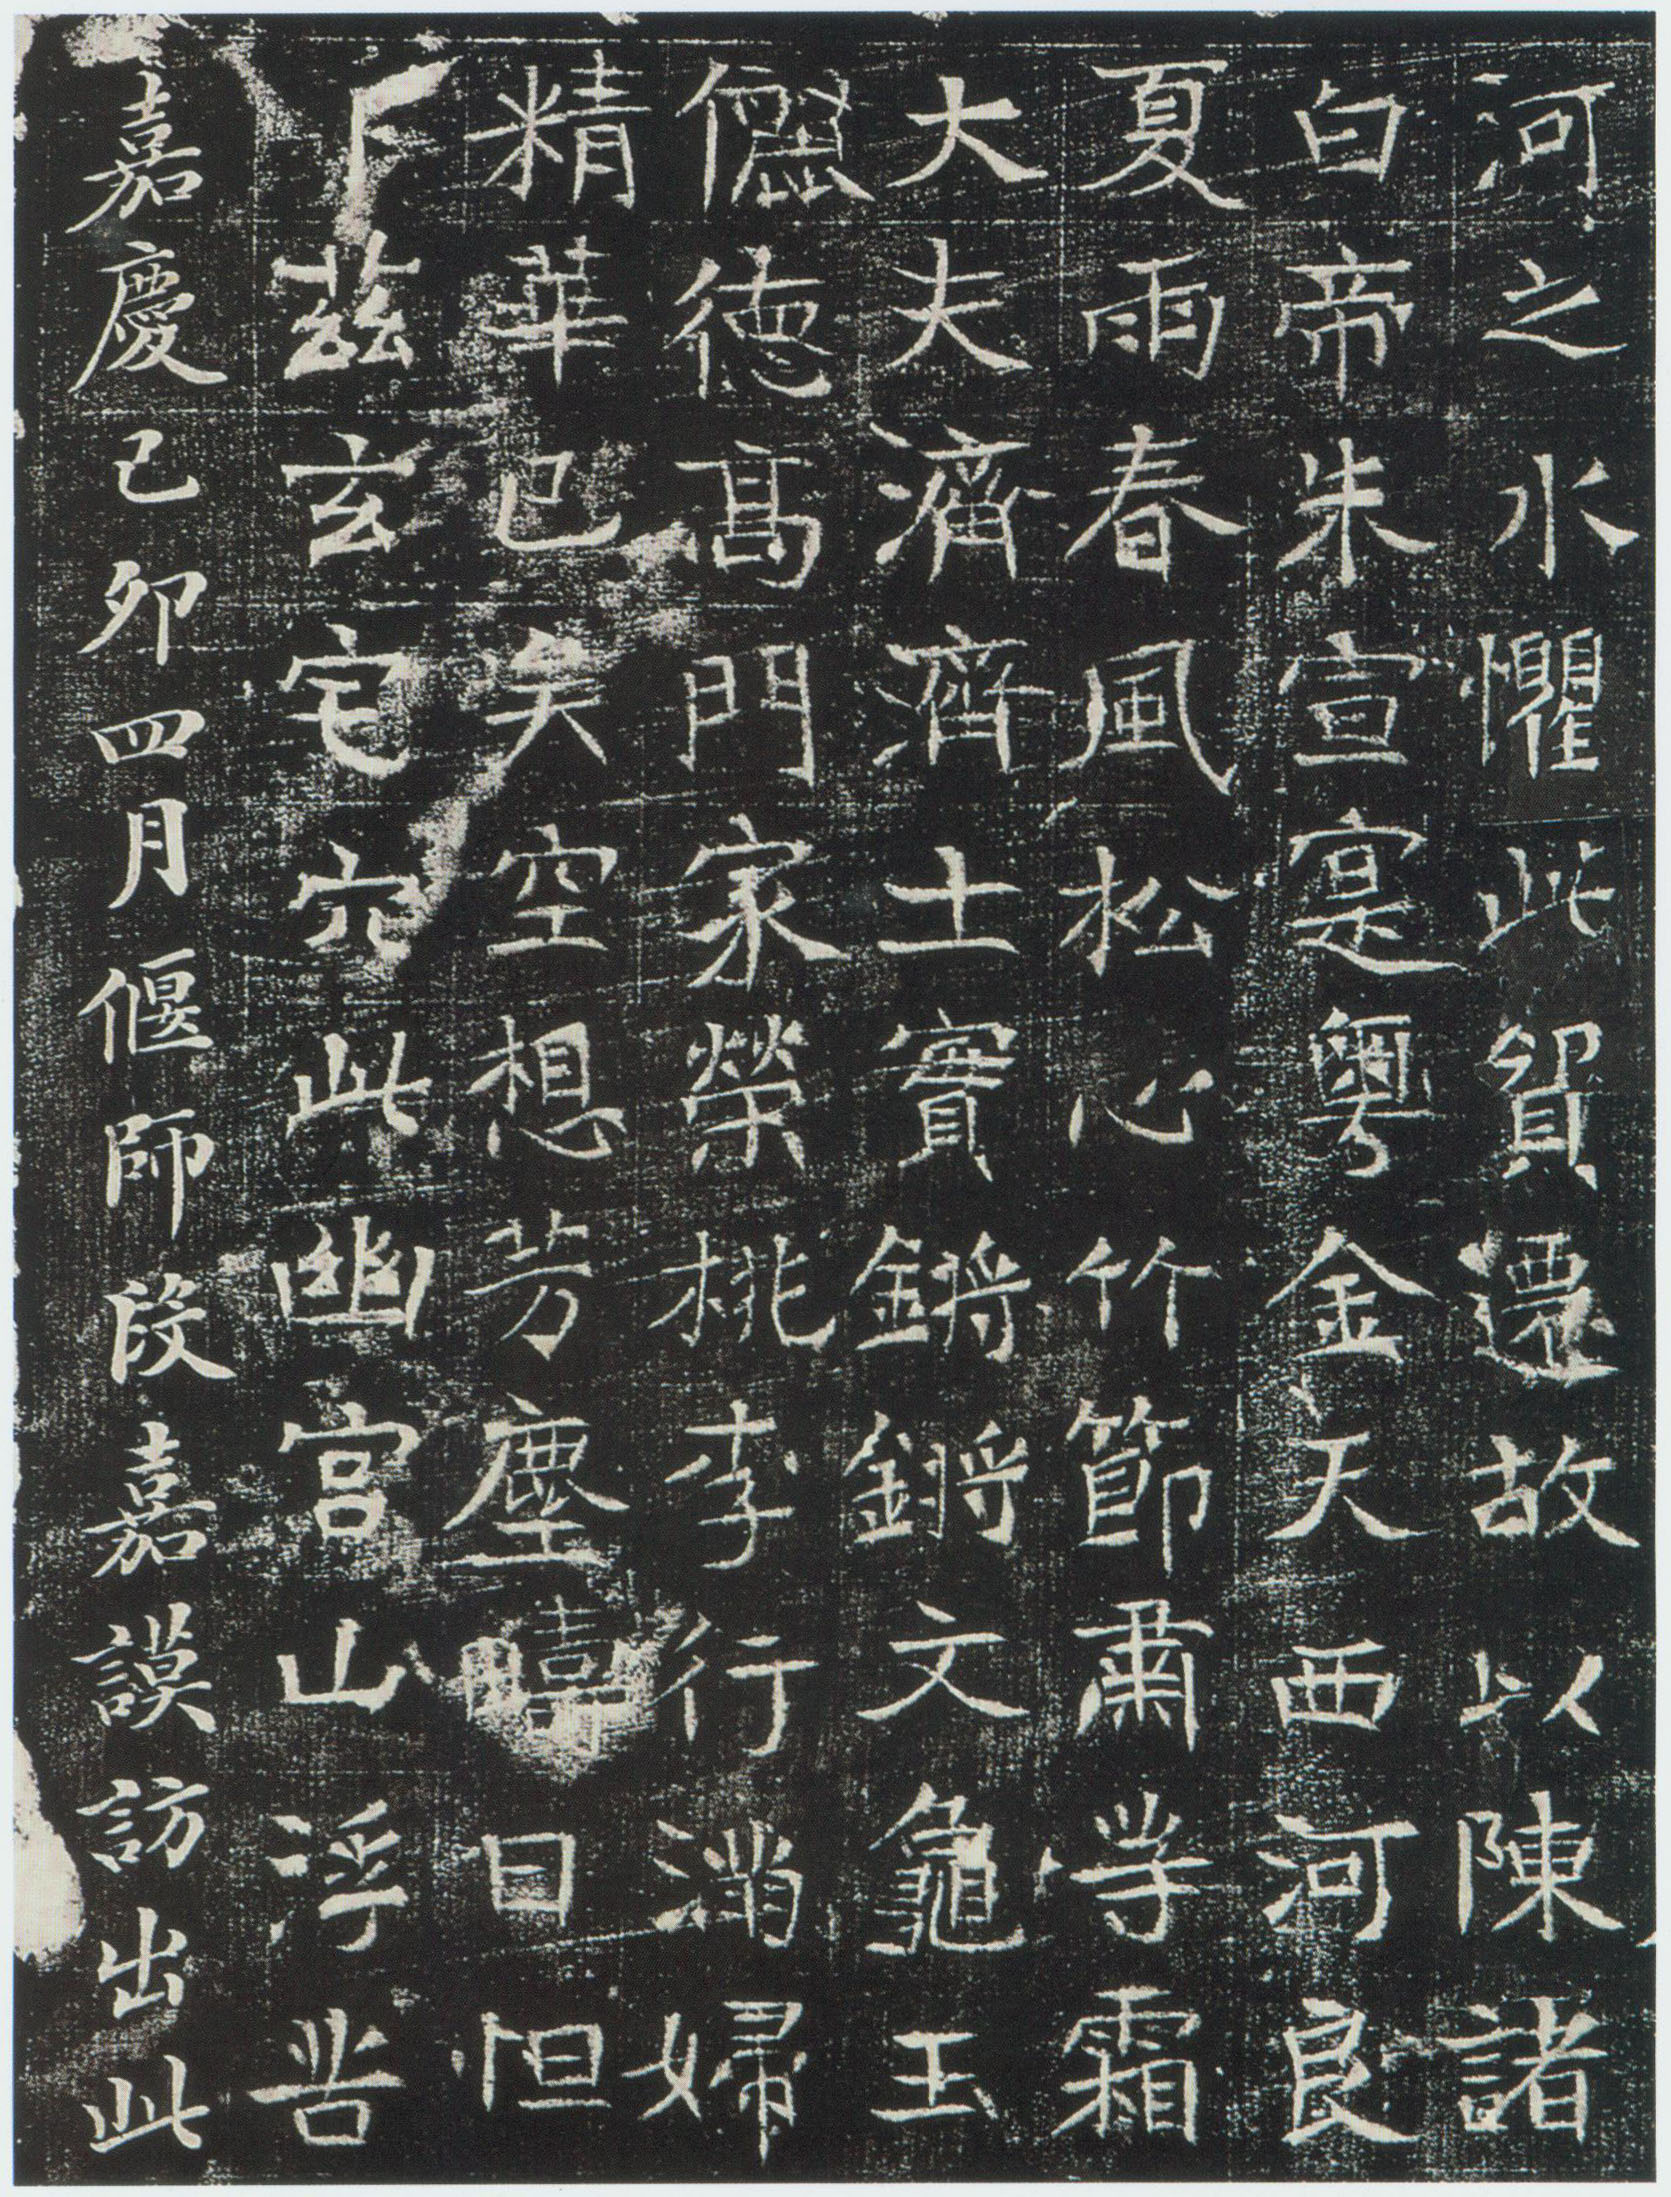 河之水懼此貿遷故以陳諸
白帝朱宣寔粵金天西河良
夏雨春風松心竹節肅䒭霜
大夫濟濟士實鏘鏘文龜玉
儷德髙門家榮桃李行消婦
精華已矣空想芳塵嘻日怛
卜茲玄宅穴此幽宫山浮苦
嘉慶己卯四月偃師段嘉謨訪出此